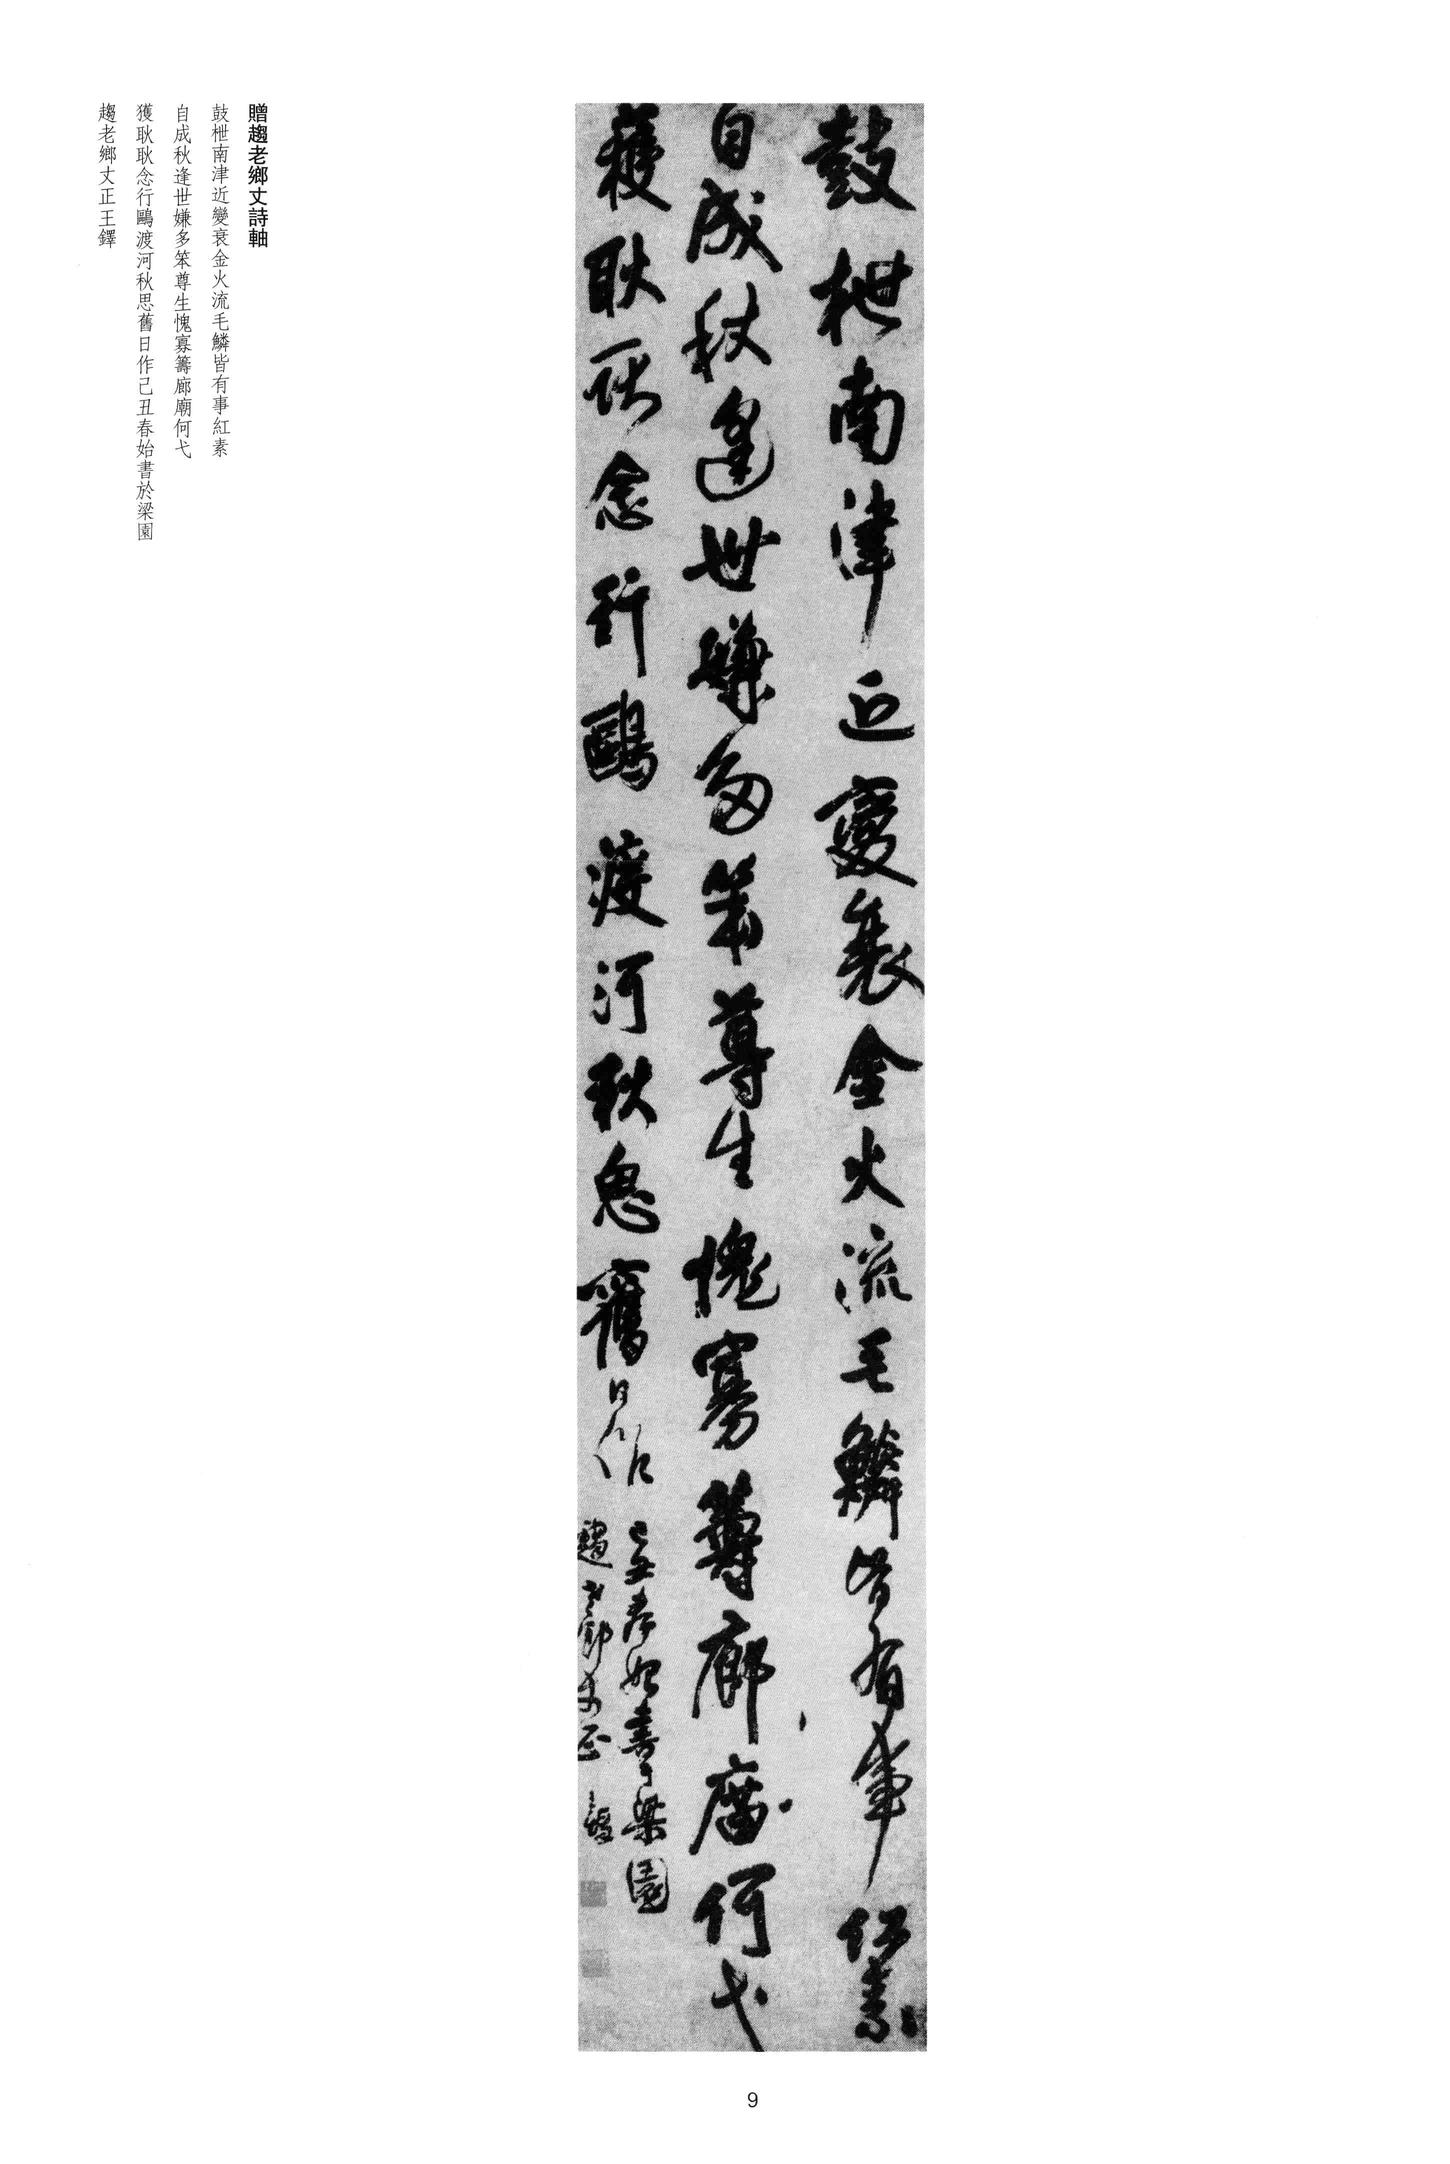 鼓枻南津近變衰金火流毛鱗皆有事紅素
自成秋逢世嫌多笨尊生愧寡籌廊廟何弋
獲耿耿念行鷗渡河秋思舊日作
己丑春始書于梁園
趨老鄉丈正王鐸
贈趨老鄉丈詩軸
鼓枻南津近變衰金火流毛鱗皆有事紅素
自成秋逢世嫌多笨尊生愧寡籌廊廟何弋
獲耿耿念行鷗渡河秋思舊日作己丑春始書於梁園
趨老鄉丈正王鐸
9